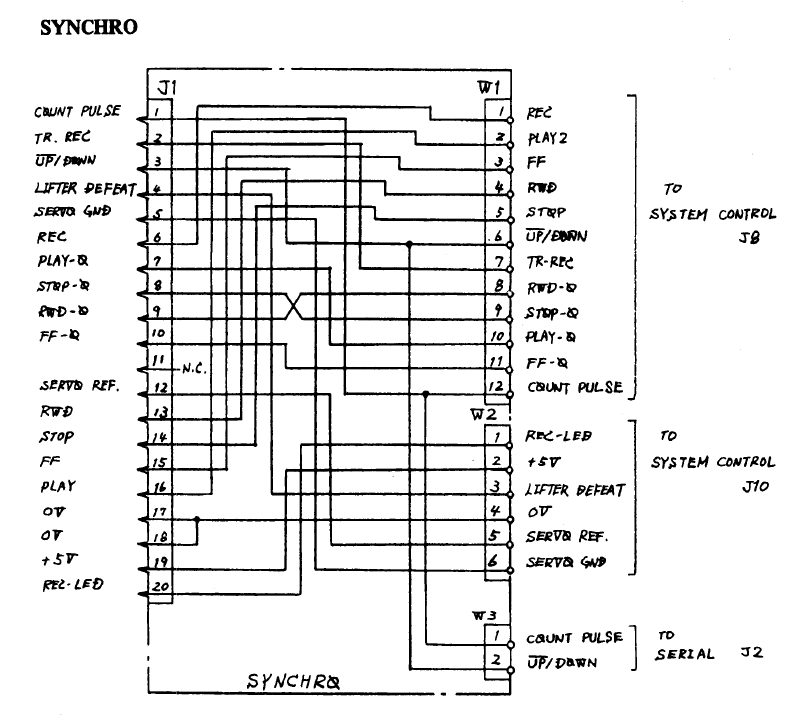 SYNCHRO
J1
COUNT PULSE 1
TR. REC 2
UP/DOWN 3
LIFTER DEFEAT 4
SERVO GND 5
REC 6
PLAY-O 7
STOP-O 8
RWD-O 9
FF-O 10
11 N.C.
SERVO REF. 12
RWD 13
STOP 14
FF 15
PLAY 16
0V 17
0V 18
+5V 19
REC-LED 20
W1
1 REC
2 PLAY2
3 FF
4 RWD
5 STOP
6 UP/DOWN
7 TR-REC
8 RWD-O
9 STOP-O
10 PLAY-O
11 FF-O
12 COUNT PULSE
TO
SYSTEM CONTROL
J8
W2
1 REC-LED
2 +5V
3 LIFTER DEFEAT
4 0V
5 SERVO REF.
6 SERVO GND
TO
SYSTEM CONTROL
J10
W3
1 COUNT PULSE
2 UP/DOWN
TO
SERIAL J2
SYNCHRO